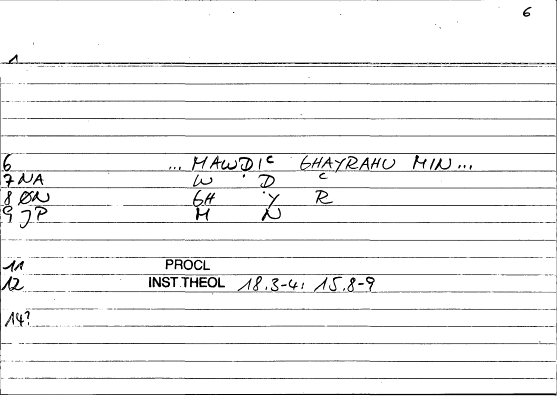 6
1
6 ... MAWḌIC GHAYRAHU MIN ...
7 NA W Ḍ C
8 ØN GH Y R
9 JP M N
11 PROCL
12 INST.THEOL 18.3-4: 15.8-9
14?